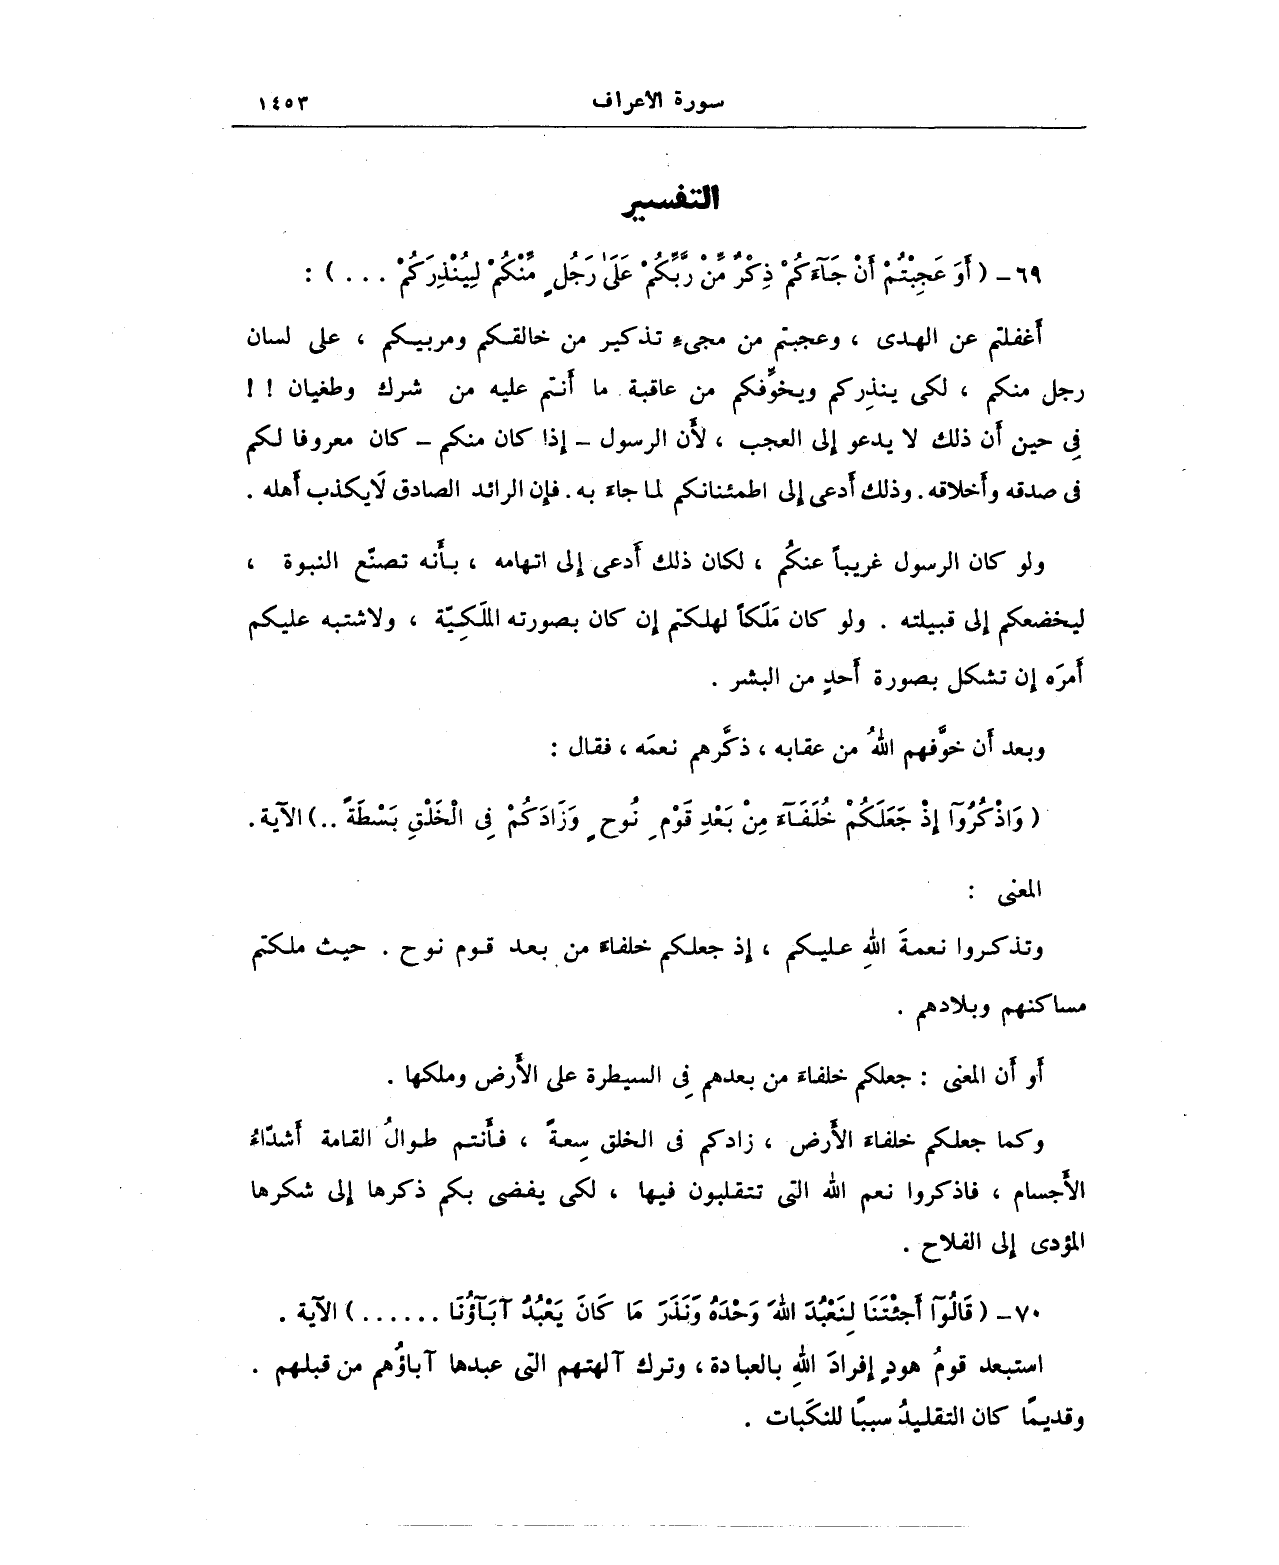 سورة الاعراف ١٤٥٣
التفسير
٦٩ – ( أَوَ عَجِبْتُمْ أَنْ جَآءَكُمْ ذِكْرٌ مِّنْ رَّبِّكُمْ عَلَىٰ رَجُلٍ مِّنْكُمْ لِيُنْذِرَكُمْ . . . ) :
أغفلتم عن الهدى ، وعجبتم من مجىء تذكير من خالقكم ومربيكم ، على لسان
رجل منكم ، لكى ينذِركم ويخوِّفكم من عاقبة ما أنتم عليه من شرك وطغيان ! !
فِى حين أن ذلك لا يدعو إلى العجب ، لأن الرسول – إذا كان منكم – كان معروفا لكم
فى صدقه وأخلاقه . وذلك أدعى إلى اطمئنانكم لما جاءَ به . فإن الرائد الصادق لَايكذب أهله .
ولو كان الرسول غريباً عنكُم ، لكان ذلك أدعى إلى اتهامه ، بأنه تصنّع النبوة ،
ليخضعكم إلى قبيلته . ولو كان مَلَكاً لهلكتم إن كان بصورته الملَكِيّة ، ولاشتبه عليكم
أمرَه إن تشكل بصورة أحدٍ من البشر .
وبعد أن خوَّفهم اللهُ من عقابه ، ذكَّرهم نعمَه ، فقال :
( وَاذْكُرُوٓا إِذْ جَعَلَكُمْ خُلَفَآءَ مِنْ بَعْدِ قَوْمِ نُوحٍ وَزَادَكُمْ فِى الْخَلْقِ بَسْطَةً ..) الآية .
المعنى :
وتذكروا نعمةَ اللهِ عليكم ، إذ جعلكم خلفاءَ من بعد قوم نوح . حيث ملكتم
مساكنهم وبلادهم .
أو أن المعنى : جعلكم خلفاءَ من بعدهم فِى السيطرة على الأرض وملكها .
وكما جعلكم خلفاءَ الأرض ، زادكم فى الخلق سِعةً ، فأنتم طوالُ القامة أشدّاءُ
الأجسام ، فاذكروا نعم الله التى تتقلبون فيها ، لكى يفضى بكم ذكرها إلى شكرها
المؤدى إلى الفلاح .
٧٠ – ( قَالُوٓا أَجِئْتَنَا لِنَعْبُدَ اللهَ وَحْدَهُ وَنَذَرَ مَا كَانَ يَعْبُدُ آبَآؤُنَا . . . . . . ) الآية .
استبعد قومُ هودٍ إفرادَ اللهِ بالعبادة ، وترك آلهتهم التى عبدها آباؤُهم من قبلهم .
وقديمًا كان التقليدُ سببًا للنكَبات .